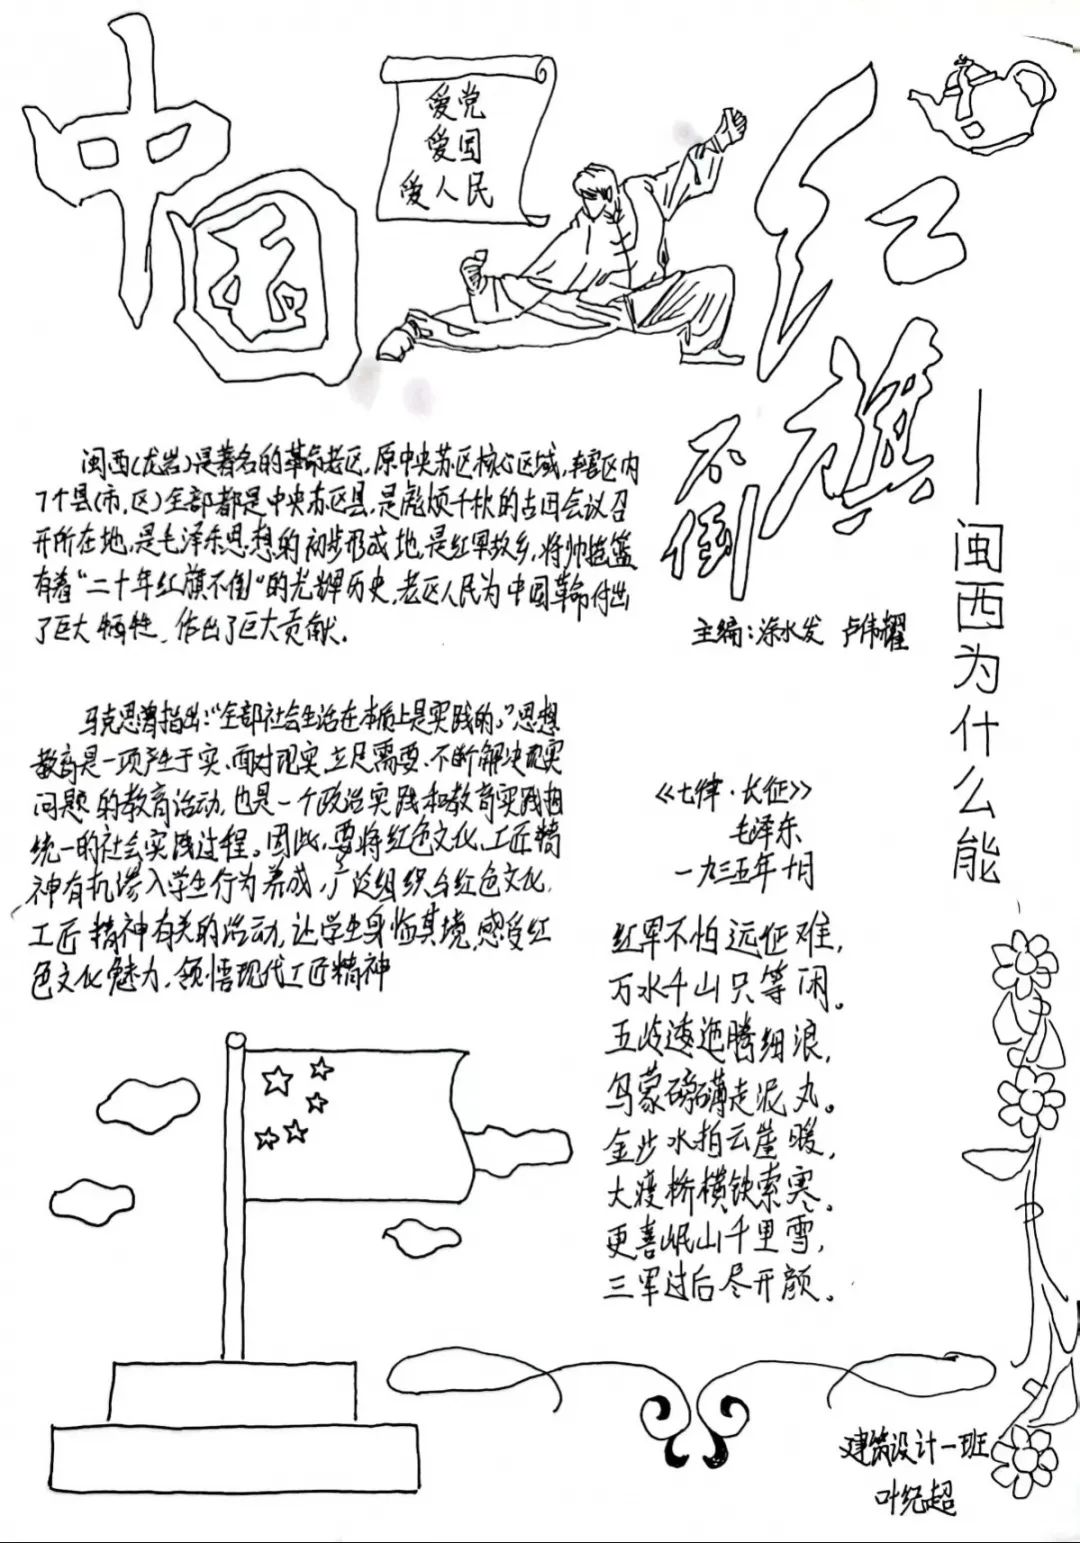 中国
爱党
爱国
爱人民
红旗
不倒
——闽西为什么能
主编:涂水发 卢伟耀
闽西(龙岩)是著名的革命老区,原中央苏区核心区域,辖区内
7个县(市、区)全部都是中央苏区县,是彪炳千秋的古田会议召
开所在地,是毛泽东思想的初步形成地,是红军故乡、将帅摇篮
有着“二十年红旗不倒”的光辉历史,老区人民为中国革命付出
了巨大牺牲,作出了巨大贡献。
马克思曾指出:“全部社会生活在本质上是实践的。”思想
教育是一项产生于实、面对现实、立足需要、不断解决现实
问题的教育活动,也是一个政治实践和教育实践相
统一的社会实践过程。因此,要将红色文化、工匠精
神有机渗入学生行为养成,广泛组织与红色文化、
工匠精神有关的活动,让学生身临其境,感受红
色文化魅力,领悟现代工匠精神
《七律·长征》
毛泽东
一九三五年十月
红军不怕远征难,
万水千山只等闲。
五岭逶迤腾细浪,
乌蒙磅礴走泥丸。
金沙水拍云崖暖,
大渡桥横铁索寒。
更喜岷山千里雪,
三军过后尽开颜。
建筑设计一班
叶纪超